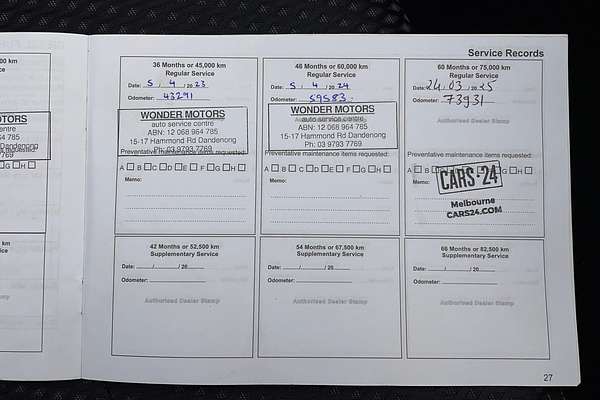 Service Records
00 km
ce
OTORS
centre
784 785
Dandenong
793 7769
requested:
G H
36 Months or 45,000 km
Regular Service
Date: 5 / 4 / 20 23
Odometer: 43291
WONDER MOTORS
auto service centre
ABN: 12 068 964 785
15-17 Hammond Rd Dandenong
Ph: 03 9793 7769
Preventative maintenance items requested:
A B C D E F G H
Memo:
48 Months or 60,000 km
Regular Service
Date: 5 / 4 / 20 24
Odometer: 59583
WONDER MOTORS
auto service centre
ABN: 12 068 964 785
15-17 Hammond Rd Dandenong
Ph: 03 9793 7769
Preventative maintenance items requested:
A B C D E F G H
Memo:
60 Months or 75,000 km
Regular Service
Date: 24 / 03 / 20 25
Odometer: 73931
Authorised Dealer Stamp
Preventative maintenance items requested:
A B G H
Memo:
CARS24
Melbourne
CARS24.COM
km
ice
42 Months or 52,500 km
Supplementary Service
Date: / / 20
Odometer:
Authorised Dealer Stamp
54 Months or 67,500 km
Supplementary Service
Date: / / 20
Odometer:
Authorised Dealer Stamp
66 Months or 82,500 km
Supplementary Service
Date: / / 20
Odometer:
Authorised Dealer Stamp
27